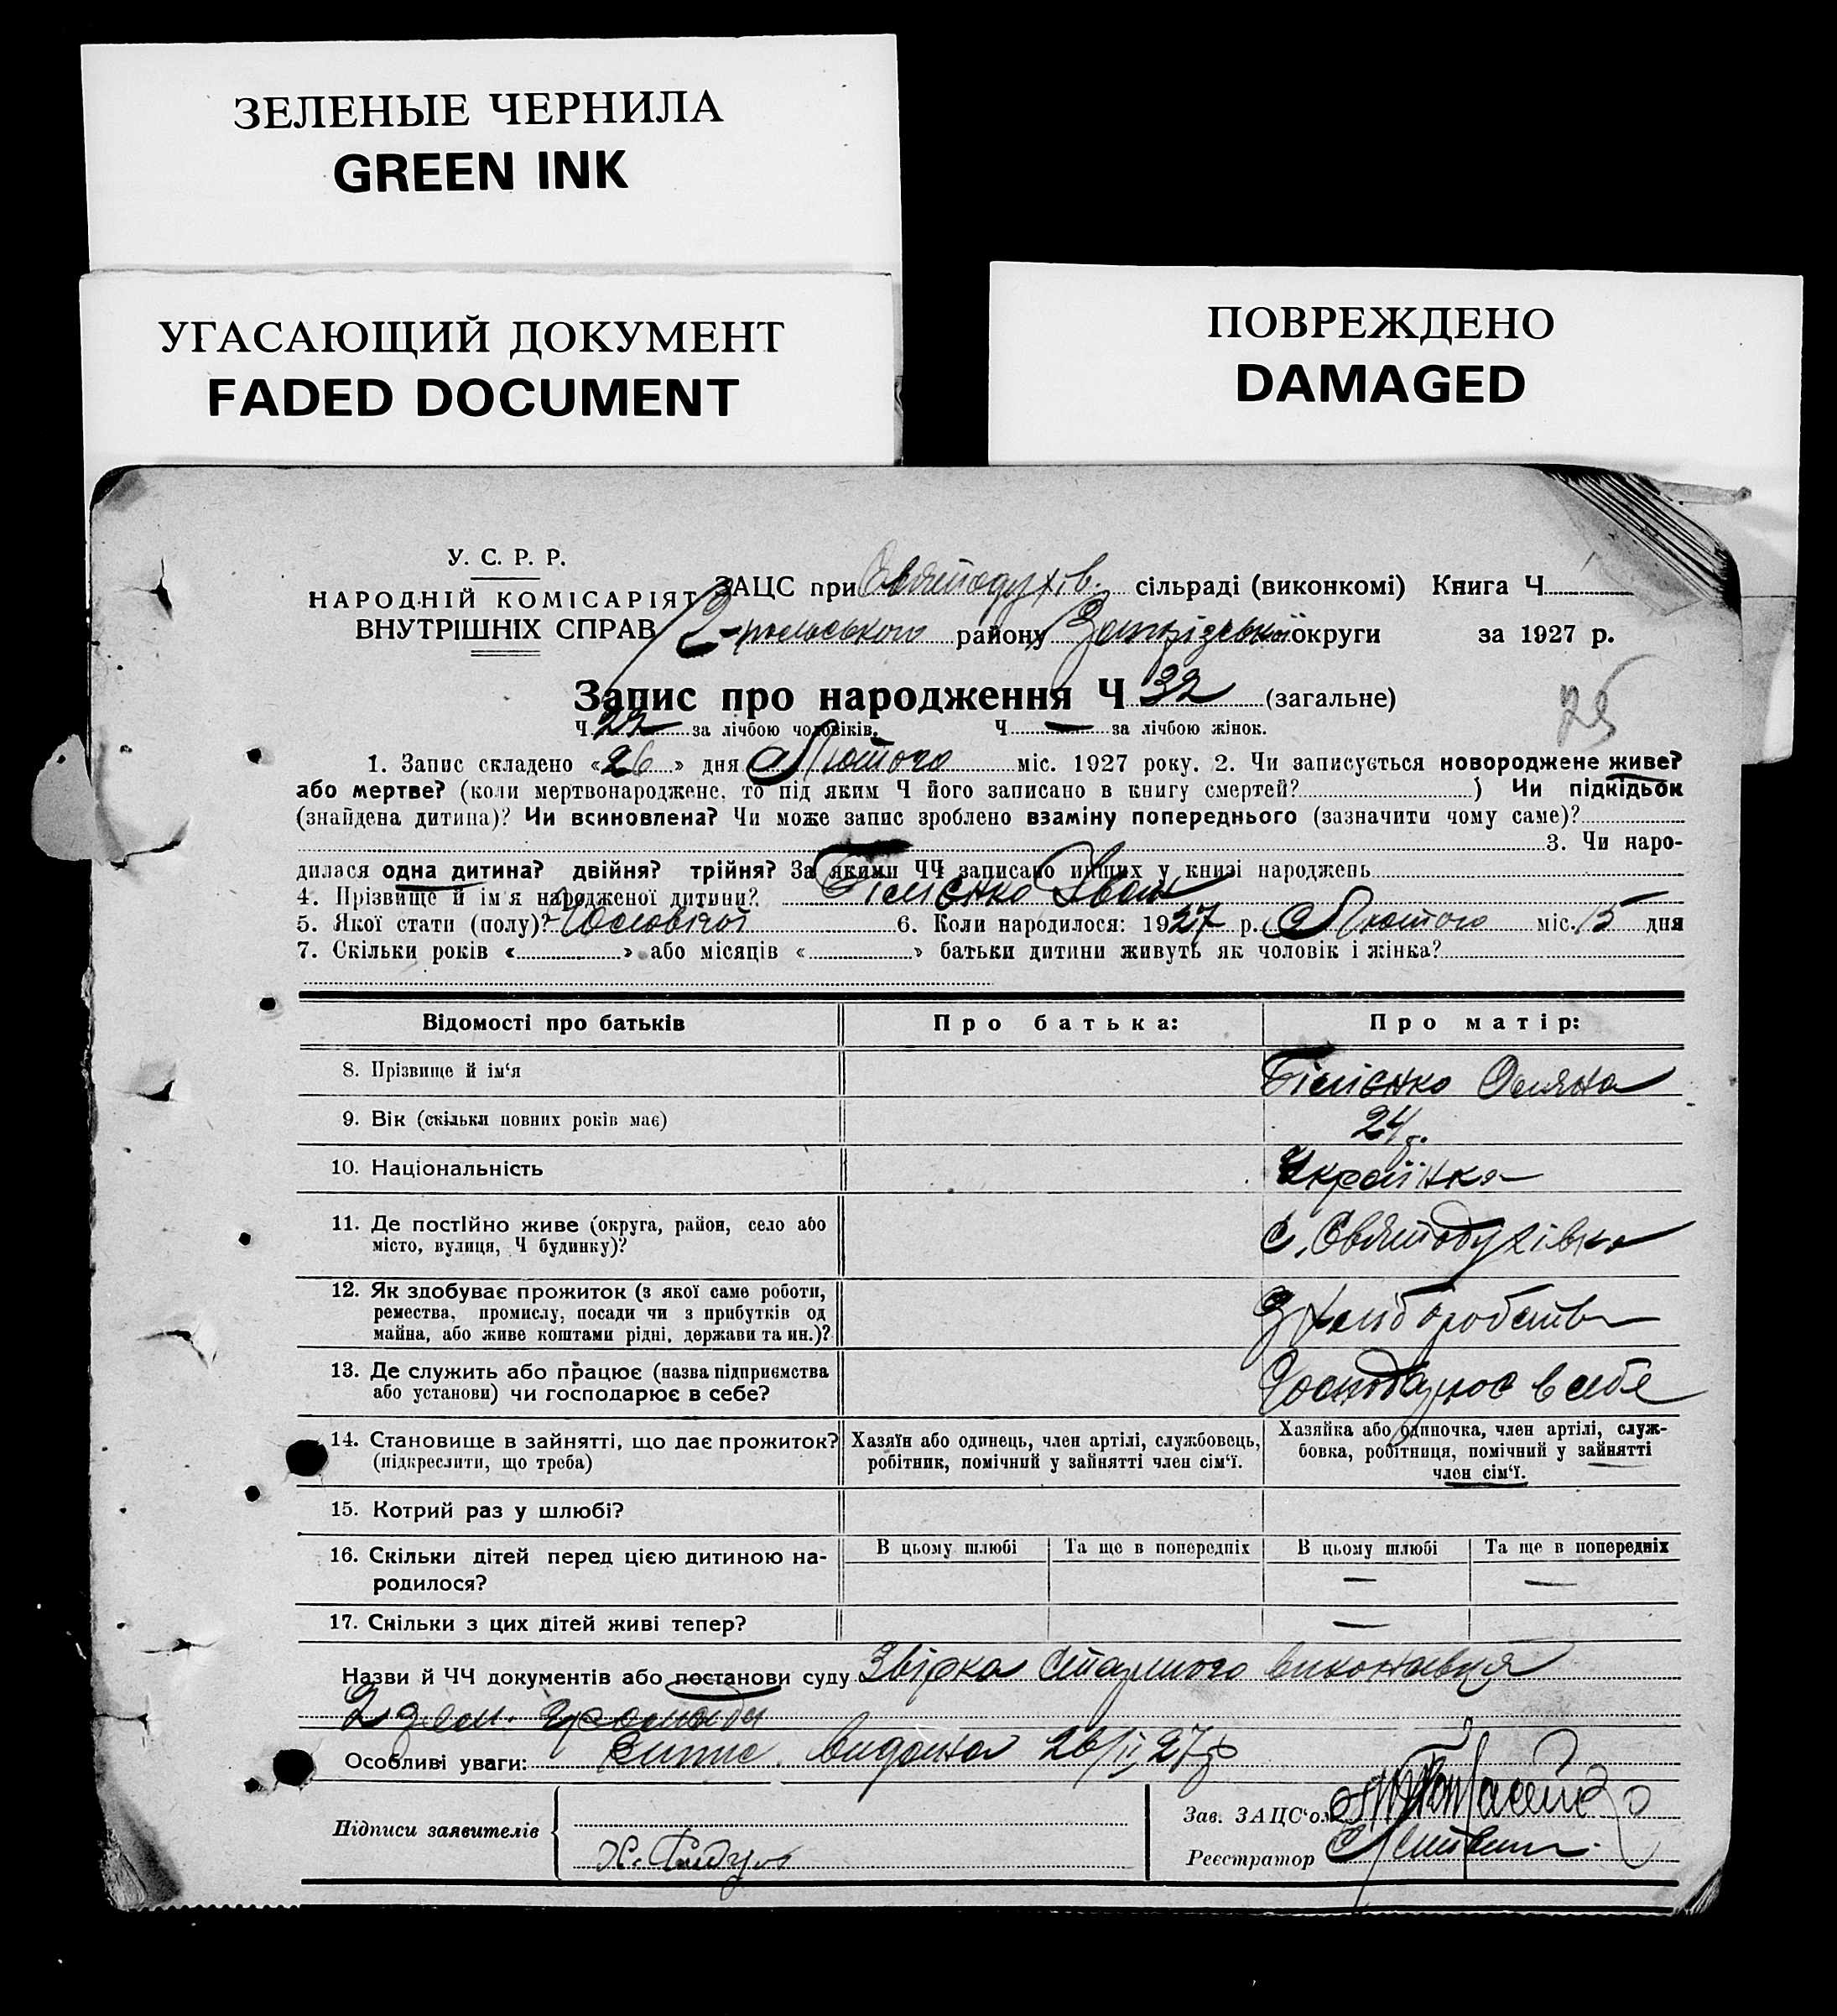 ЗЕЛЕНЫЕ ЧЕРНИЛА
GREEN INK
УГАСАЮЩИЙ ДОКУМЕНТ
FADED DOCUMENT
ПОВРЕЖДЕНО
DAMAGED
У. С. Р. Р.
НАРОДНІЙ КОМІСАРІЯТ
ВНУТРІШНІХ СПРАВ
ЗАЦС при Святодухів. сільраді (виконкомі) Книга Ч
району Запорізької округи за 1927 р.
Запис про народження Ч 32 (загальне)
25
Ч 22 за лічбою чоловіків. Ч — за лічбою жінок.
1. Запис складено «26» дня Лютого міс. 1927 року. 2. Чи записується новороджене живе?
або мертве? (коли мертвонароджене, то під яким Ч його записано в книгу смертей? ) Чи підкідьок
(знайдена дитина)? Чи всиновлена? Чи може запис зроблено взаміну попереднього (зазначити чому саме)?
3. Чи наро-
дилася одна дитина? двійня? трійня? За якими ЧЧ записано инших у книзі народжень
4. Прізвище й ім'я народженої дитини? Білієнко Іван
5. Якої стати (полу)? Чоловічої 6. Коли народилося: 1927 р. Лютого міс. 15 дня
7. Скільки років « » або місяців « » батьки дитини живуть як чоловік і жінка?
Відомості про батьків Про батька: Про матір:
8. Прізвище й ім'я Білієнко Оляна
9. Вік (скільки повних років має) 24 р.
10. Національність Українка
11. Де постійно живе (округа, район, село або
місто, вулиця, Ч будинку)? с. Святодухівка
12. Як здобуває прожиток (з якої саме роботи,
ремества, промислу, посади чи з прибутків од
майна, або живе коштами рідні, держави та ин.)? З хліборобства
13. Де служить або працює (назва підприємства
або установи) чи господарює в себе? Господарює в себе
14. Становище в зайнятті, що дає прожиток?
(підкреслити, що треба)
Хазяїн або одинець, член артілі, службовець,
робітник, помічний у зайнятті член сім'ї.
Хазяйка або одиночка, член артілі, служ-
бовка, робітниця, помічний у зайнятті
член сім'ї.
15. Котрий раз у шлюбі?
16. Скільки дітей перед цією дитиною на-
родилося?
В цьому шлюбі Та ще в попередніх В цьому шлюбі Та ще в попередніх
— —
17. Скільки з цих дітей живі тепер? —
Назви й ЧЧ документів або постанови суду Звірка Старшого виконавця
2 зем. громади
Особливі уваги: Випис. видана 26/II 27 р
Підписи заявителів
Зав. ЗАЦС'ом
Реєстратор